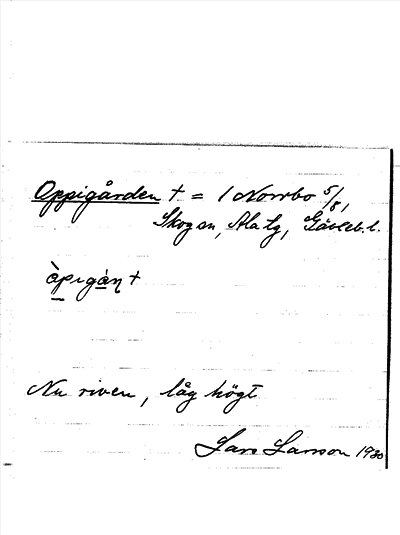 Oppigården † = 1 Norrbo 5/8,
Skogen, Ala tg, Gävleb. l.
òpigán †
Nu riven, låg högt
Lars Larsson 1930